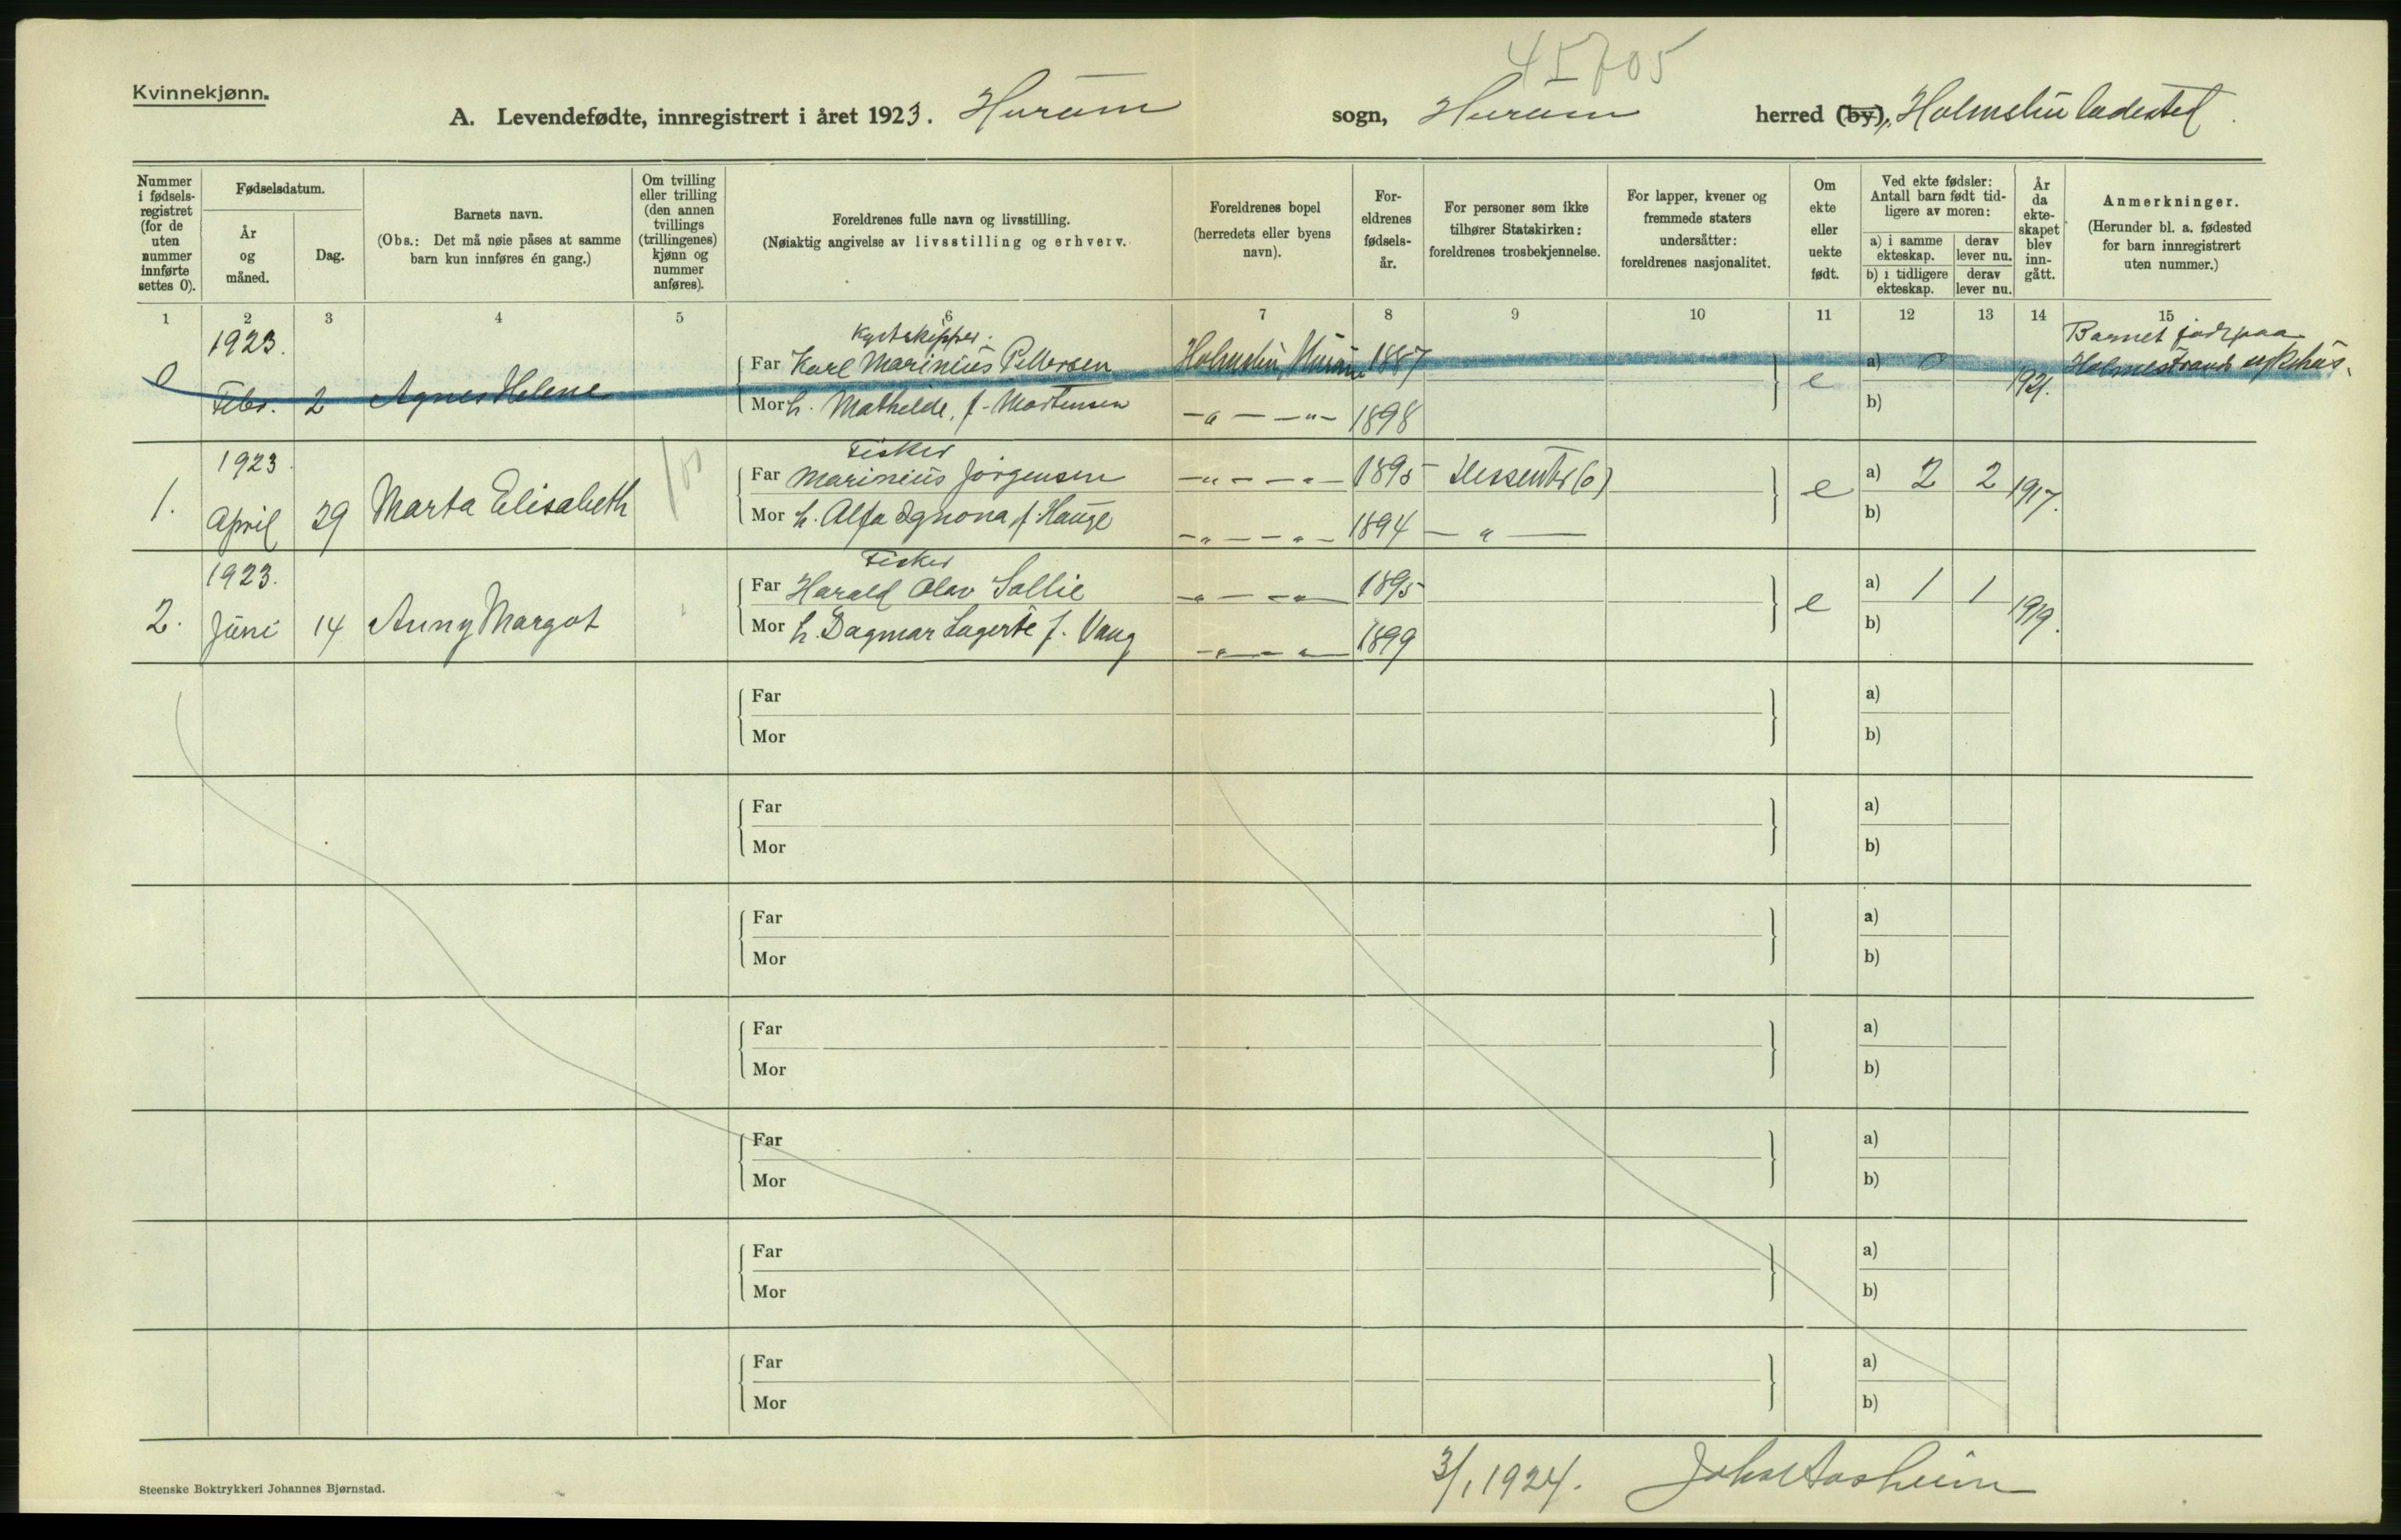 45705
Kvinnekjønn.
A. Levendefødte, innregistrert i året 1923. Hurum sogn, Hurum herred (by), Holmsbu ladested.
Nummer i fødselsregistret (for de uten nummer innførte settes 0).
Fødselsdatum.
År og måned.
Dag.
Barnets navn.
(Obs.: Det må nøie påses at samme barn kun innføres én gang.)
Om tvilling eller trilling (den annen tvillings (trillingenes) kjønn og nummer anføres).
Foreldrenes fulle navn og livsstilling.
(Nøiaktig angivelse av livsstilling og erhverv.)
Foreldrenes bopel (herredets eller byens navn).
Foreldrenes fødselsår.
For personer som ikke tilhører Statskirken: foreldrenes trosbekjennelse.
For lapper, kvener og fremmede staters undersåtter: foreldrenes nasjonalitet.
Om ekte eller uekte født.
Ved ekte fødsler: Antall barn født tidligere av moren:
a) i samme ekteskap. derav lever nu.
b) i tidligere ekteskap. derav lever nu.
År da ekteskapet blev inngått.
Anmerkninger.
(Herunder bl. a. fødested for barn innregistrert uten nummer.)
1 2 3 4 5 6 7 8 9 10 11 12 13 14 15
0 1923. Febr. 2 Agnes Helene
Kystskipper.
Far Karl Marinius Pettersen Holmsbu, Hurum 1887
Mor h. Mathilde, f. Mortensen —"— —"— 1898
e a) 0 b) 1921.
Barnet født paa Holmestrands sykehus.
1. 1923 April 29 Marta Elisabeth
Fisker
Far Marinius Jørgensen —"— —"— 1895 Dissenter (6)
Mor h. Alfa Ignona f. Hauge —"— —"— 1894 —"—
e a) 2 2 b) 1917.
2. 1923. Juni 14 Anny Margot
Fisker
Far Harald Olav Sollie —"— —"— 1895
Mor h. Dagmar Lagerte f. Vang —"— —"— 1899
e a) 1 1 b) 1919.
Far a)
Mor b)
Far a)
Mor b)
Far a)
Mor b)
Far a)
Mor b)
Far a)
Mor b)
Far a)
Mor b)
Far a)
Mor b)
3/1 1924.
Steenske Boktrykkeri Johannes Bjørnstad.